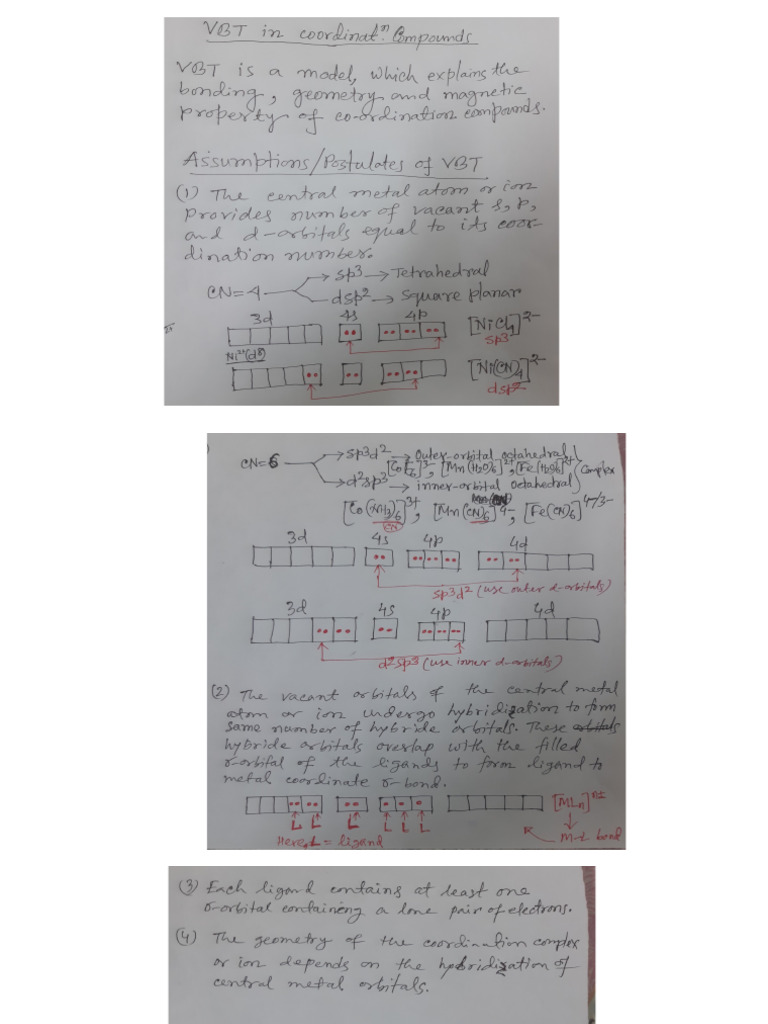 VBT in coordinatn. Compounds
VBT is a model, which explains the
bonding, geometry and magnetic
property of co-ordination compounds.
Assumptions/Postulates of VBT
(1) The central metal atom or ion
provides number of vacant s, p,
and d-orbitals equal to its coor-
dination number.
sp3 → Tetrahedral
CN=4
dsp2 → square planar
3d 4s 4p [NiCl4]2-
sp3
Ni2+(d8)
[Ni(CN)4]2-
dsp2
sp3d2 → outer-orbital octahedral
CN=6 [CoF6]3-, [Mn(H2O)6]2+, [Fe(H2O)6] Complex
d2sp3 → inner-orbital octahedral
[Co(NH3)6]3+, [Mn(CN)6]4-, [Fe(CN)6]4-/3-
CN
3d 4s 4p 4d
sp3d2 (use outer d-orbitals)
3d 4s 4p 4d
d2sp3 (use inner d-orbitals)
(2) The vacant orbitals of the central metal
atom or ion undergo hybridization to form
same number of hybride orbitals. These orbitals
hybride orbitals overlap with the filled
σ-orbital of the ligands to form ligand to
metal coordinate σ-bond.
[MLn]n±
L L L L L L
Here, L = ligand M-L bond
(3) Each ligand contains at least one
σ-orbital containing a lone pair of electrons.
(4) The geometry of the coordination complex
or ion depends on the hybridization of
central metal orbitals.